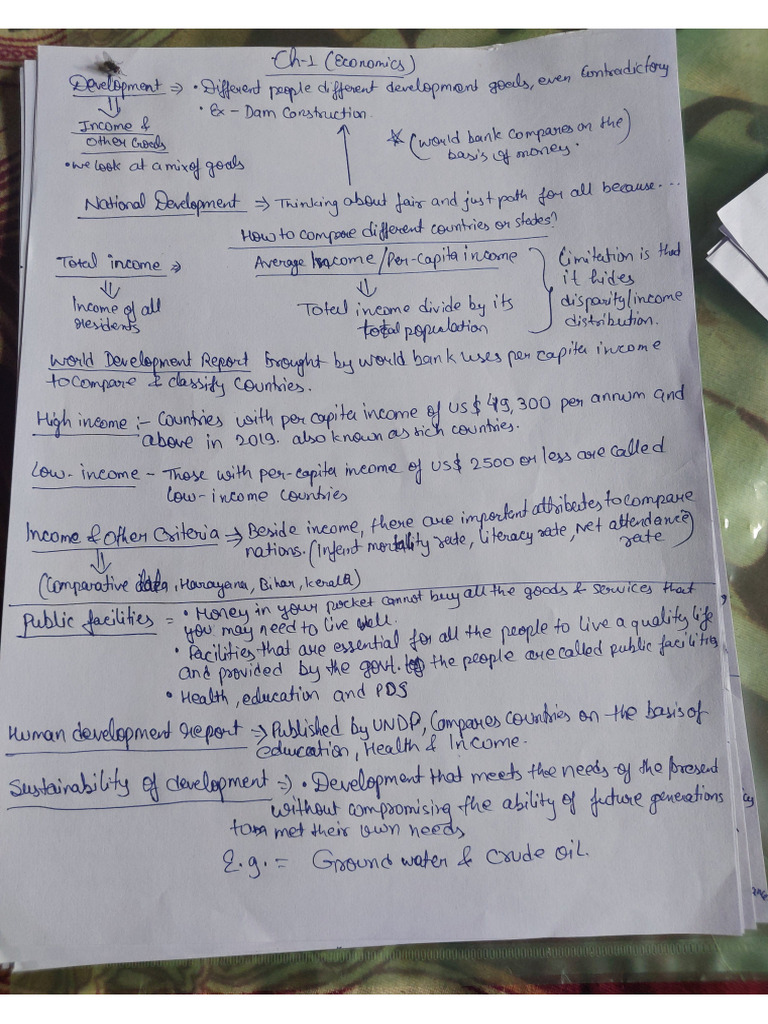 Ch-1 (Economics)
Development ⇒ • Different people different development goals, even Contradictory
• Ex - Dam Construction.
Income &
Other Goods
• we look at a mix of goals
* (World bank compares on the
basis of money.)
National Development ⇒ Thinking about fair and just path for all because...
How to compare different countries or states?
Total income ⇒
Average Income/Per-Capita income
Income of all
residents
Total income divide by its
total population
Limitation is that
it hides
disparity/income
distribution.
World Development Report Brought by world bank uses per capita income
to compare & classify countries.
High income :- Countries with per capita income of US $ 49,300 per annum and
above in 2019. also known as rich countries.
Low-income - Those with per-capita income of US$ 2500 or less are called
low-income countries
Income & Other Criteria ⇒ Beside income, there are important attributes to compare
nations. (Infent mortality rate, literacy rate, Net attendance
rate)
(Comparative data, Harayana, Bihar, Kerala)
Public facilities = • Money in your pocket cannot buy all the goods & services that
you may need to live well.
• Facilities that are essential for all the people to live a quality life,
and provided by the govt. to the people are called public facilities
• Health, education and PDS
Human development report ⇒ Published by UNDP, Compares Countries on the basis of
education, Health & Income.
Sustainability of development ⇒ • Development that meets the needs of the present
without compromising the ability of future generations
to met their own needs
E.g. = Ground water & Crude oil.